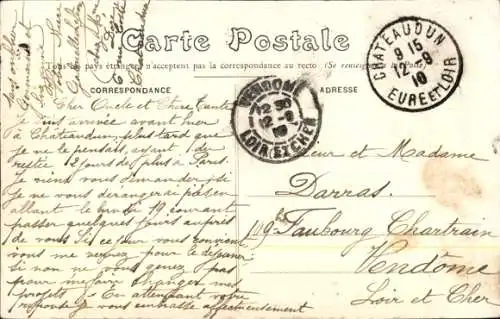 Carte Postale
Tous les pays étrangers n'acceptent pas la correspondance au recto (Se renseigner à la Poste)
CORRESPONDANCE
ADRESSE
CHATEAUDUN
9 15
12 - 9
10
EURE ET LOIR
VENDOME
12 - 9
10
LOIR ET CHER
Cher Oncle et Chère Tante
Je suis arrivée avant hier
à Châteaudun, plus tard que
je ne le pensais, ayant dû
rester 12 jours de plus à Paris.
Je viens vous demander si
Je ne vous dérangerai pas en
allant le lundi 19 courant
passer quelques jours auprès
de vous Si ce jour vous convient
vous me verrez pour le déjeuner
si non ne vous gênez pas
pour me faire changer mes
projets - En attendant votre
réponse je vous embrasse affectueusement
Monsieur et Madame
Darras.
119 Faubourg Chartrain
Vendôme
Loir et Cher